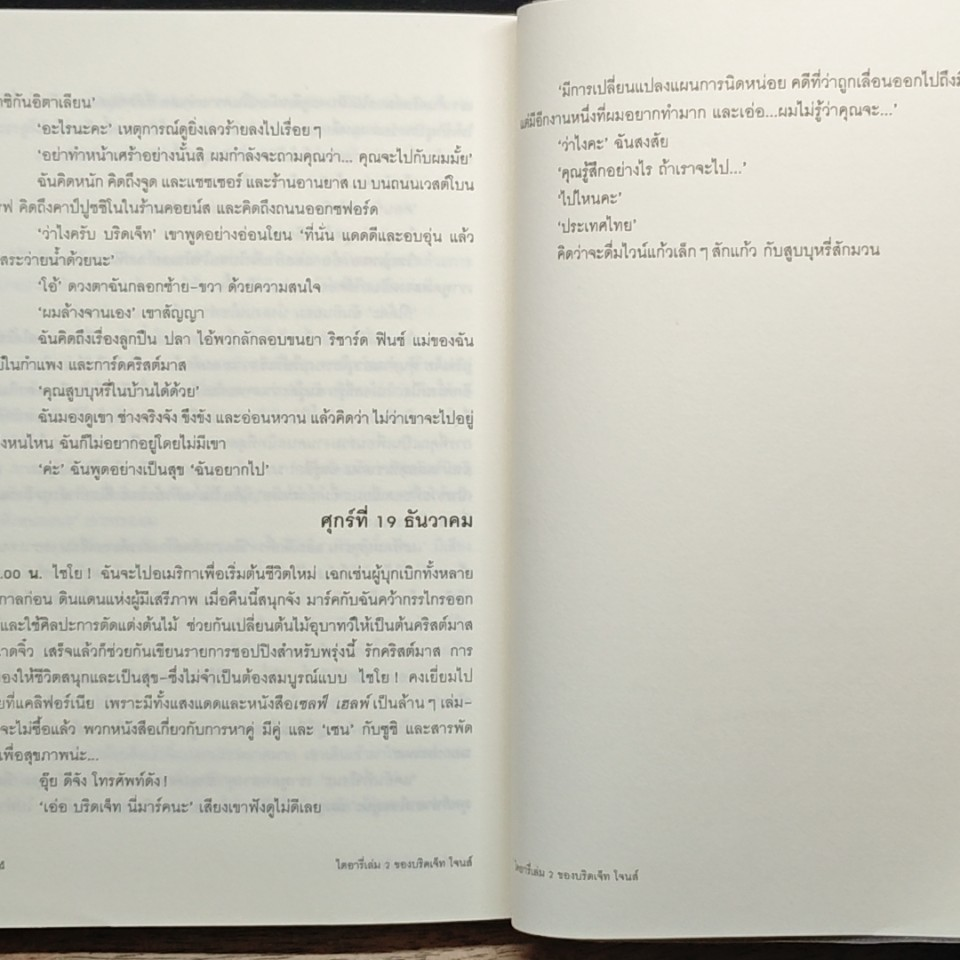 ซิกันอิตาเลียน'
'อะไรนะคะ' เหตุการณ์ดูยิ่งเลวร้ายลงไปเรื่อยๆ
'อย่าทำหน้าเศร้าอย่างนั้นสิ ผมกำลังจะถามคุณว่า... คุณจะไปกับผมมั้ย'
ฉันคิดหนัก คิดถึงจูด และแชซเซอร์ และร้านอานยาส เบ บนถนนเวสต์โบน
รฟ คิดถึงคาปูปูชชิโนในร้านคอยน์ส และคิดถึงถนนออกซฟอร์ด
'ว่าไงครับ บริดเจ็ท' เขาพูดอย่างอ่อนโยน 'ที่นั่น แดดดีและอบอุ่น แล้ว
สระว่ายน้ำด้วยนะ'
'โอ้' ดวงตาฉันกลอกซ้าย-ขวา ด้วยความสนใจ
'ผมล้างจานเอง' เขาสัญญา
ฉันคิดถึงเรื่องลูกปืน ปลา ไอ้พวกลักลอบขนยา ริชาร์ด ฟินช์ แม่ของฉัน
ในกำแพง และการ์ดคริสต์มาส
'คุณสูบบุหรี่ในบ้านได้ด้วย'
ฉันมองดูเขา ช่างจริงจัง ขึงขัง และอ่อนหวาน แล้วคิดว่า ไม่ว่าเขาจะไปอยู่
งหนไหน ฉันก็ไม่อยากอยู่โดยไม่มีเขา
'ค่ะ' ฉันพูดอย่างเป็นสุข 'ฉันอยากไป'
ศุกร์ที่ 19 ธันวาคม
.00 น. ไชโย! ฉันจะไปอเมริกาเพื่อเริ่มต้นชีวิตใหม่ เฉกเช่นผู้บุกเบิกทั้งหลาย
กาลก่อน ดินแดนแห่งผู้มีเสรีภาพ เมื่อคืนนี้สนุกจัง มาร์คกับฉันคว้ากรรไกรออก
และใช้ศิลปะการตัดแต่งต้นไม้ ช่วยกันเปลี่ยนต้นไม้อุบาทว์ให้เป็นต้นคริสต์มาส
าดจิ๋ว เสร็จแล้วก็ช่วยกันเขียนรายการชอปปิงสำหรับพรุ่งนี้ รักคริสต์มาส การ
องให้ชีวิตสนุกและเป็นสุข-ซึ่งไม่จำเป็นต้องสมบูรณ์แบบ ไชโย! คงเยี่ยมไป
ยที่แคลิฟอร์เนีย เพราะมีทั้งแสงแดดและหนังสือเซลฟ์ เฮลพ์ เป็นล้านๆ เล่ม-
จะไม่ซื้อแล้ว พวกหนังสือเกี่ยวกับการหาคู่ มีคู่ และ 'เซน' กับซูชิ และสารพัด
เพื่อสุขภาพน่ะ...
อุ๊ย ดีจัง โทรศัพท์ดัง!
'เอ่อ บริดเจ็ท นี่มาร์คนะ' เสียงเขาฟังดูไม่ดีเลย
ไดอารี่เล่ม 2 ของบริดเจ็ท โจนส์
'มีการเปลี่ยนแปลงแผนการนิดหน่อย คดีที่ว่าถูกเลื่อนออกไปถึงมิ
แต่มีอีกงานหนึ่งที่ผมอยากทำมาก และเอ่อ...ผมไม่รู้ว่าคุณจะ...'
'ว่าไงคะ' ฉันสงสัย
'คุณรู้สึกอย่างไร ถ้าเราจะไป...'
'ไปไหนคะ'
'ประเทศไทย'
คิดว่าจะดื่มไวน์แก้วเล็กๆ สักแก้ว กับสูบบุหรี่สักมวน
ไดอารี่เล่ม 2 ของบริดเจ็ท โจนส์